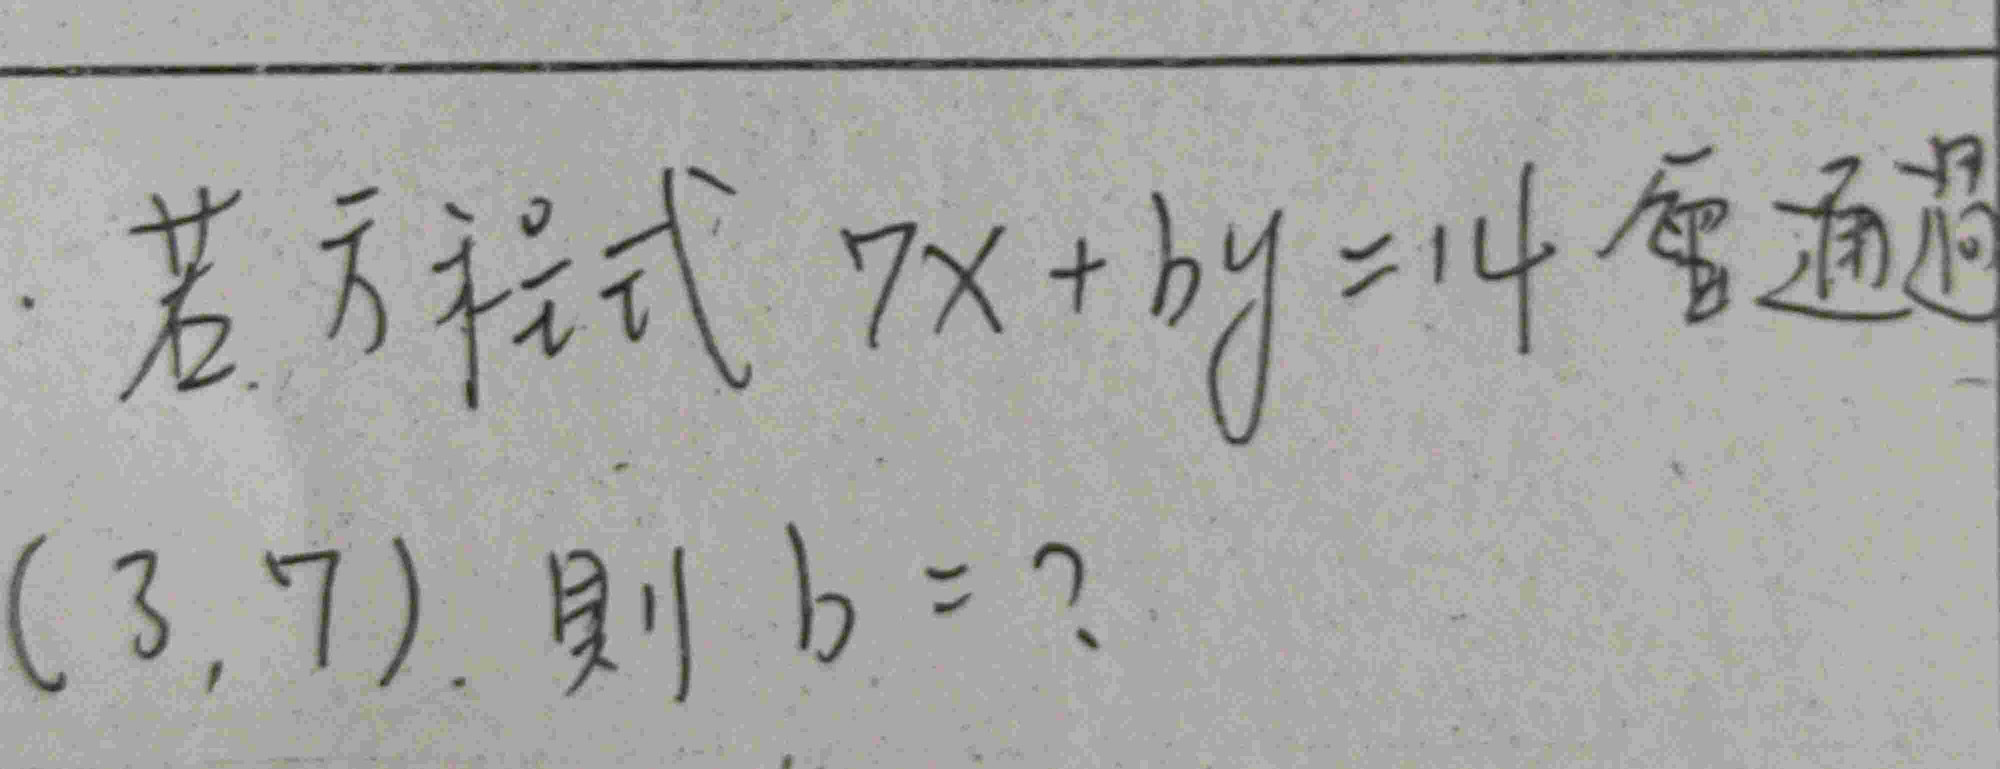 若方程式 7x + by = 14 會通過
(3, 7). 則 b = ?